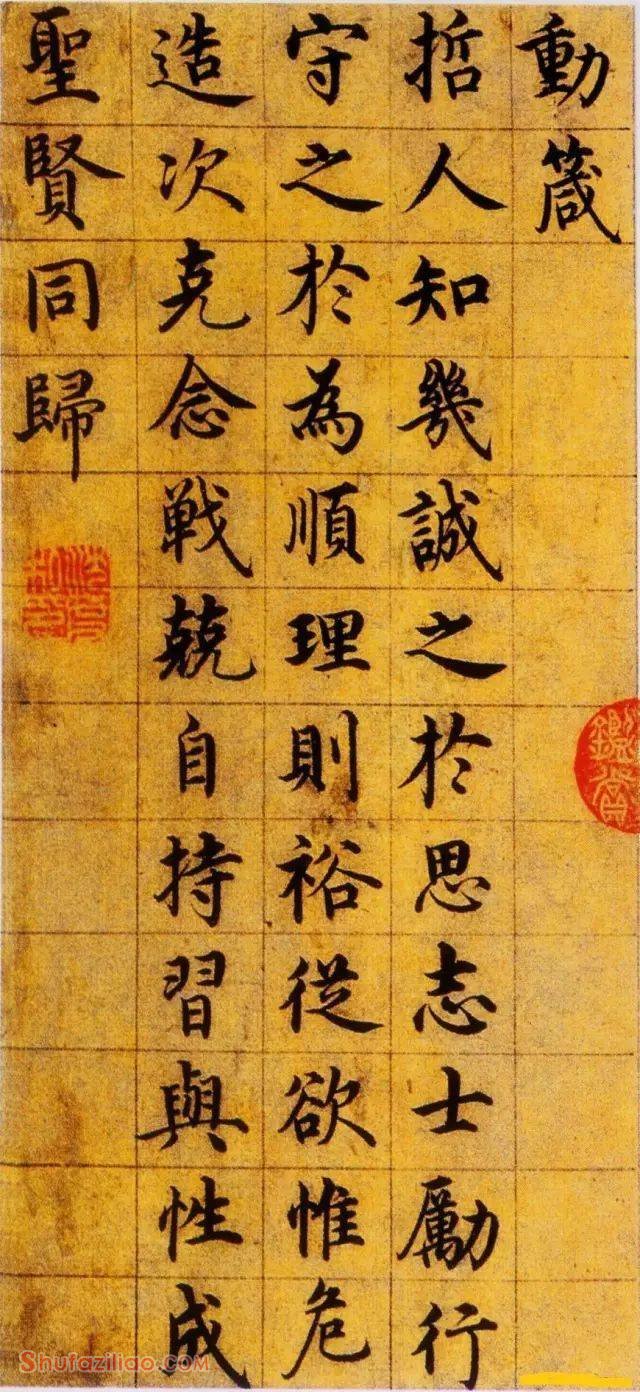 動箴
哲人知幾誠之於思志士勵行
守之於為順理則裕從欲惟危
造次克念戦兢自持習與性成
聖賢同歸
鑑賞
Shufaziliao.com